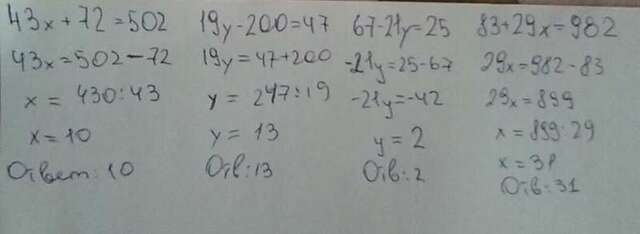 43x + 72 = 502
43x = 502 - 72
x = 430 : 43
x = 10
Ответ: 10
19y - 200 = 47
19y = 47 + 200
y = 247 : 19
y = 13
Отв: 13
67 - 21y = 25
-21y = 25 - 67
-21y = -42
y = 2
Отв: 2
83 + 29x = 982
29x = 982 - 83
29x = 899
x = 899 : 29
x = 31
Отв: 31